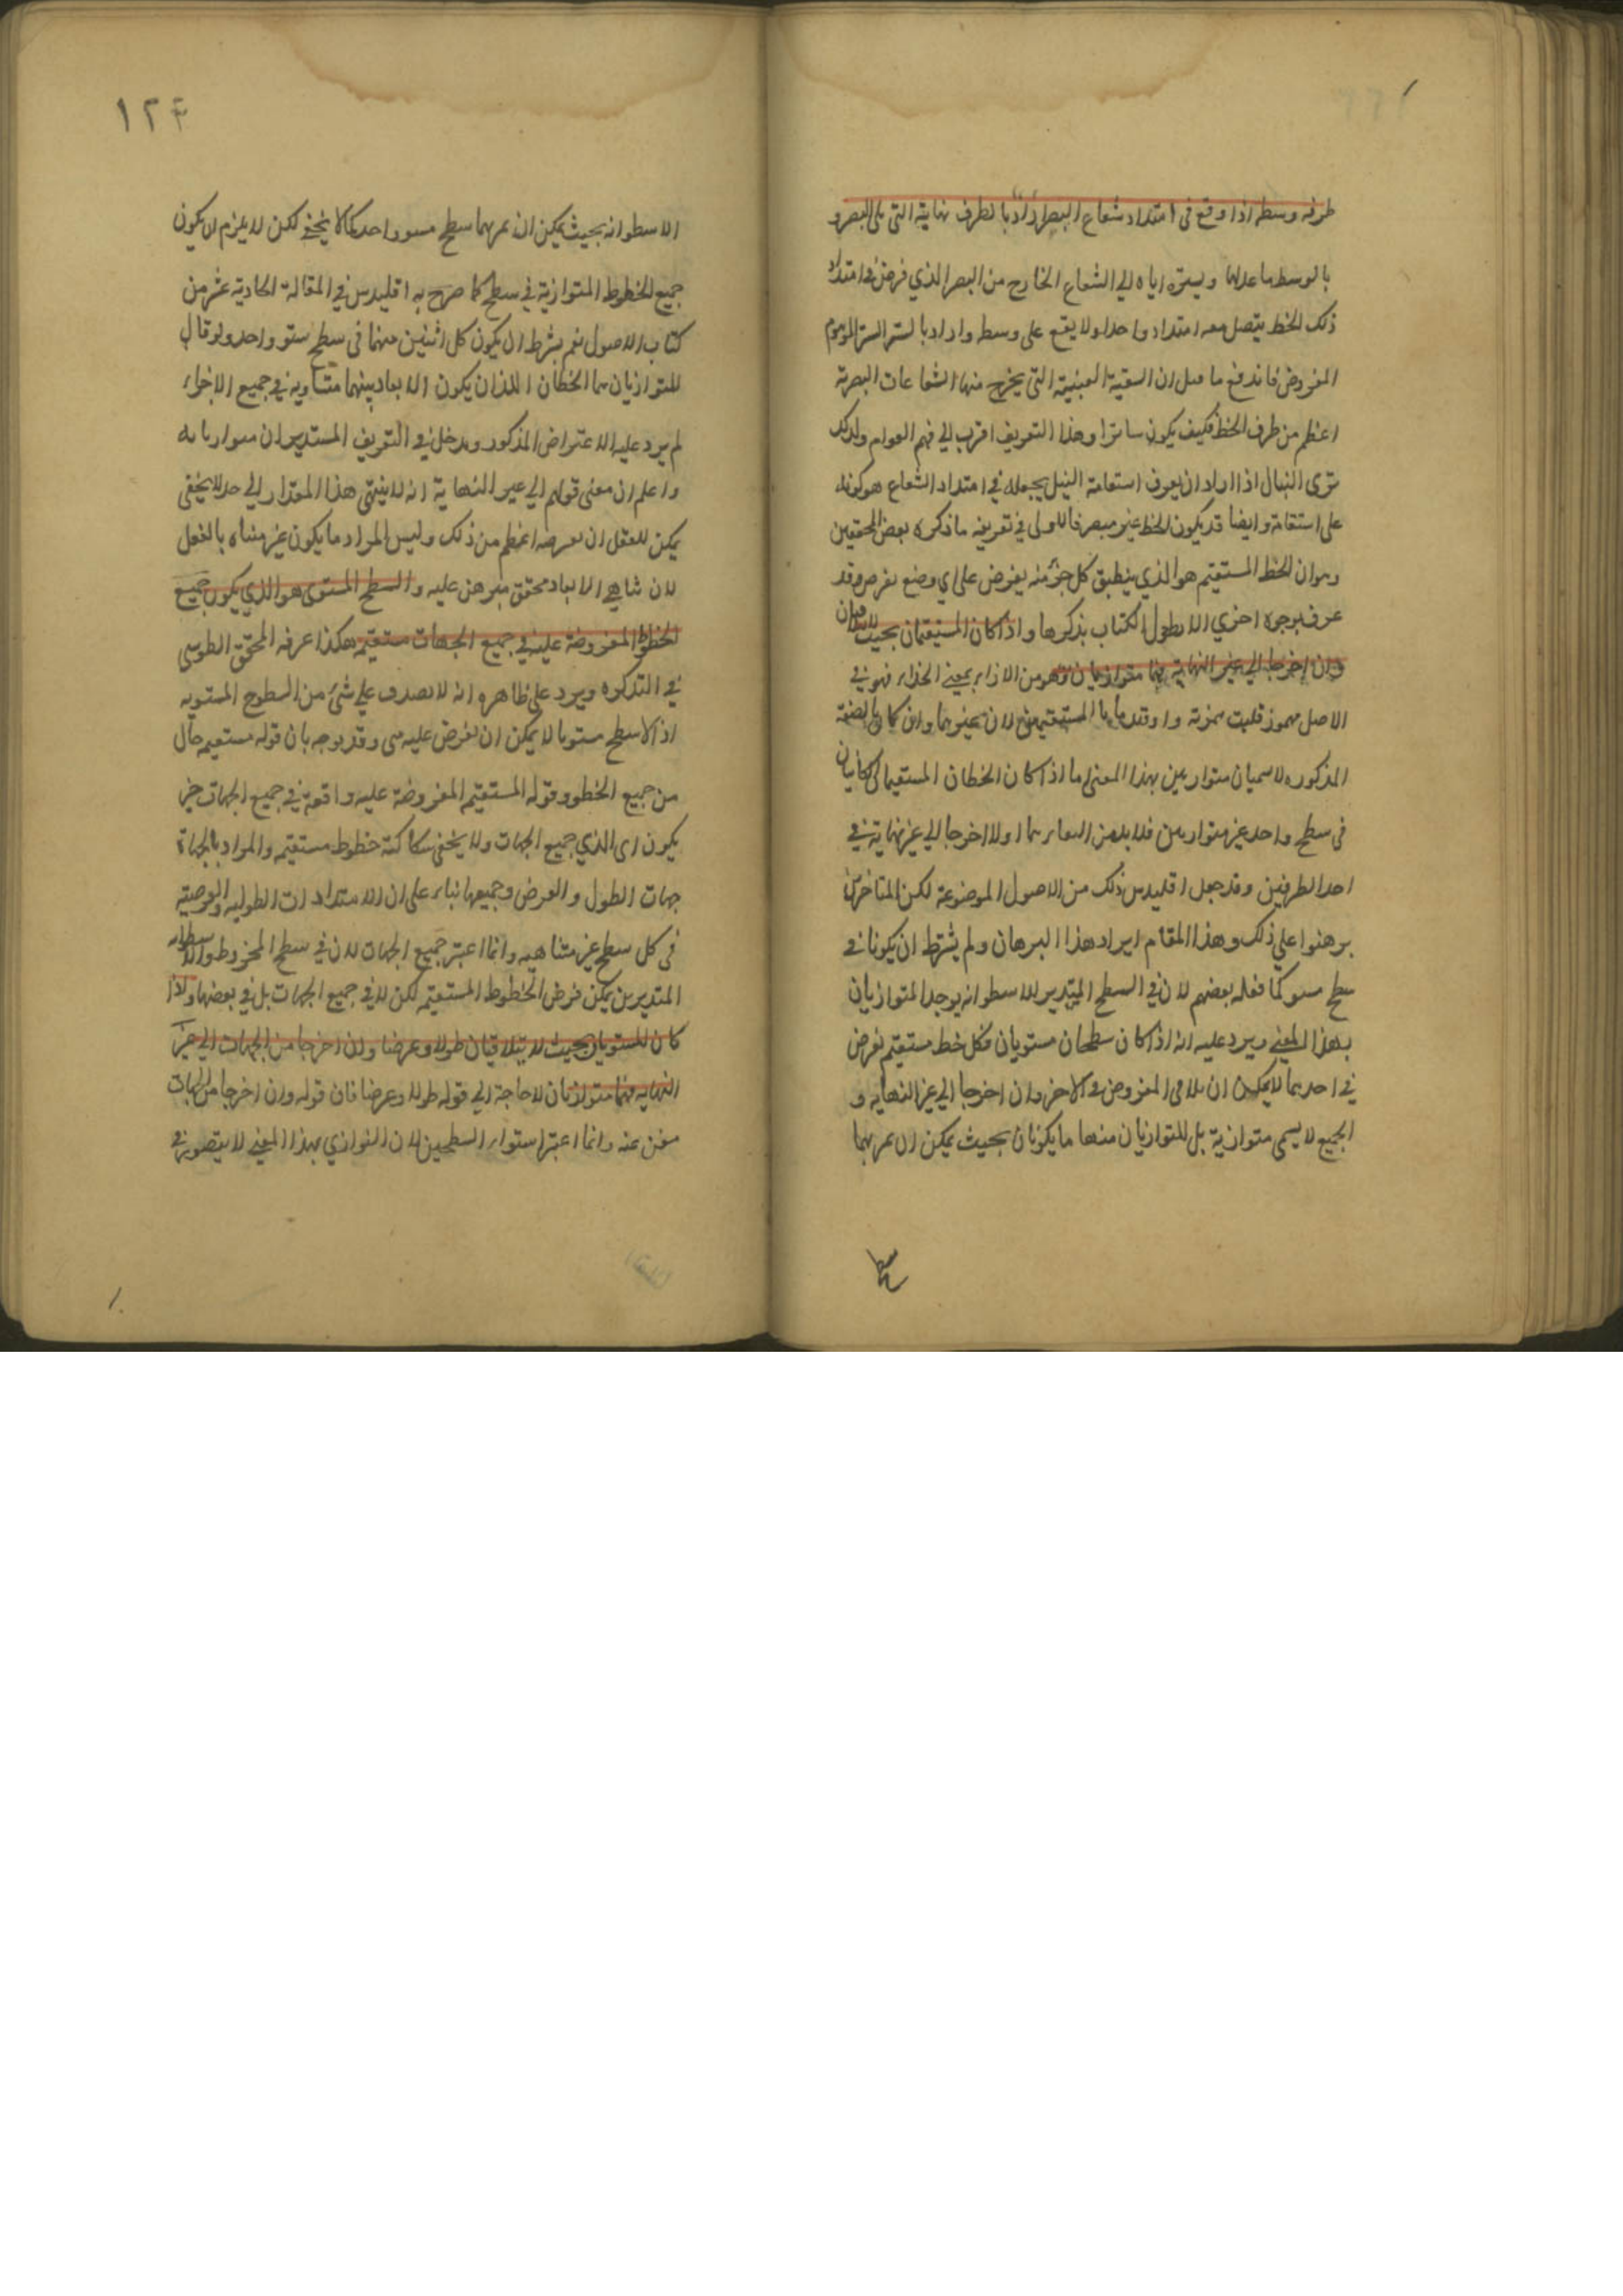 طرفه وسطه اذا وقع فى امتداد شعاع البصر اراد بالطرف نهايته التى تلى البصر و
بالوسط ما عداها ويستره اياه الى الشعاع الخارج من البصر الذي فرض فى امتداد
ذلك الخط يتصل معه امتدادا واحدا ولا يقع على وسطه واراد بالستر الستر الموهوم
المفروض فاندفع ما قيل ان الثقبة العينية التى يخرج منها الشعاعات البصرية
اعظم من طرف الخط فكيف يكون ساترا وهذا التعريف اقرب الى فهم العوام ولذلك
ترى النبال اذا اراد ان يعرف استقامة النبل يجعله في امتداد الشعاع هو كونه
على استقامة وايضا قد يكون الخط غير مبصر فالاولى في تعريفه ما ذكره بعض المحققين
وهو ان الخط المستقيم هو الذي ينطبق كل جزء منه يفرض على اي وضع يفرض وقد
عرف بوجوه اخرى لا يطول الكتاب بذكرها واذا كان المستقيمان بحيث لا يتلاقيان
وان اخرجا الى غير النهاية فهما متوازيان وهو من الازاء بمعنى الحذاء فهو في
الاصل مهموز قلبت همزته واوا قيدنا بالمستقيمين لان غيرهما وان كان بالصفة
المذكورة لا يسميان متوازيين بهذا المعنى اما اذا كان الخطان المستقيمان الكائنان
فى سطح واحد غير متوازيين فلا بد من اخرجا الى غير نهاية في
احد الطرفين وقد جعل اقليدس ذلك من الاصول الموضوعة لكن المتاخرين
برهنوا على ذلك وهذا المقام ايراد هذا البرهان ولم يشترط ان يكونا في
سطح مستو كما فعله بعضهم لان في السطح المستدير للاسطوانه يوجد المتوازيان
بهذا المعنى ويرد عليه انه اذا كان سطحان مستويان فكل خط مستقيم نفرض
في احدهما لا يمكن ان يلاقى المفروض في الاخر وان اخرجا الى غير النهاية و
الجميع لا يسمى متوازية بل المتوازيان منها ما يكونان بحيث يمكن ان يمر بهما
١٢٤
الاسطوانه بحيث يمكن ان يمر بهما سطح مستو واحد كما لا يخفى لكن لا يلزم ان يكون
جميع الخطوط المتوازية في سطح كما صرح به اقليدس في المقالة الحادية عشر من
كتاب الاصول نعم يشرط ان يكون كل اثنين منهما فى سطح مستو واحد ولو قال
المتوازيان هما الخطان اللذان يكون الابعاد بينهما متساويه في جميع الاجزاء
لم يرد عليه الاعتراض المذكور ويدخل في التعريف المستديران
واعلم ان معنى قولهم الي غير النهاية انه لا ينتهى هذا المقدار الى حد لا يخفى
يمكن للعقل ان يفرضه اعظم من ذلك وليس المراد ما يكون غير متناه بالفعل
لان تناهى الابعاد محقق مبرهن عليه والسطح المستوى هو الذي يكون جميع
الخطوط المفروضة عليه في جميع الجهات مستقيمه هكذا عرفه المحقق الطوسى
في التذكره ويرد على ظاهره انه لا يصدق على شئ من السطوح المستويه
اذ لا سطح مستويا لا يمكن ان نفرض عليه وقد يوجه بان قوله مستقيمه حال
من جميع الخطوط وقوله المستقيم المفروضة عليه واقعة في جميع الجهات خبر
يكون اى الذي جميع الجهات ولا يخفى ركاكته خطوط مستقيمه والمراد بالجهات
جهات الطول والعرض وجميعها بناء على ان الامتدادات الطوليه والعرضية
فى كل سطح غير متناهيه وانما اعتبر جميع الجهات لان في سطح المخروط والاسطوانه
المستديرين يمكن فرض الخطوط المستقيمه لكن لا في جميع الجهات بل في بعضها واذا
كان المستويان بحيث لا يتلاقيان طولا وعرضا وان اخرجا من الجهات الى غير
النهايه فهما متوازيان لا حاجة الى قوله طولا وعرضا فان قوله وان اخرجا من الجهات
مغن عنه وانما اعتبر استواء السطحين لان التوازي بهذا المعنى لا يتصور في